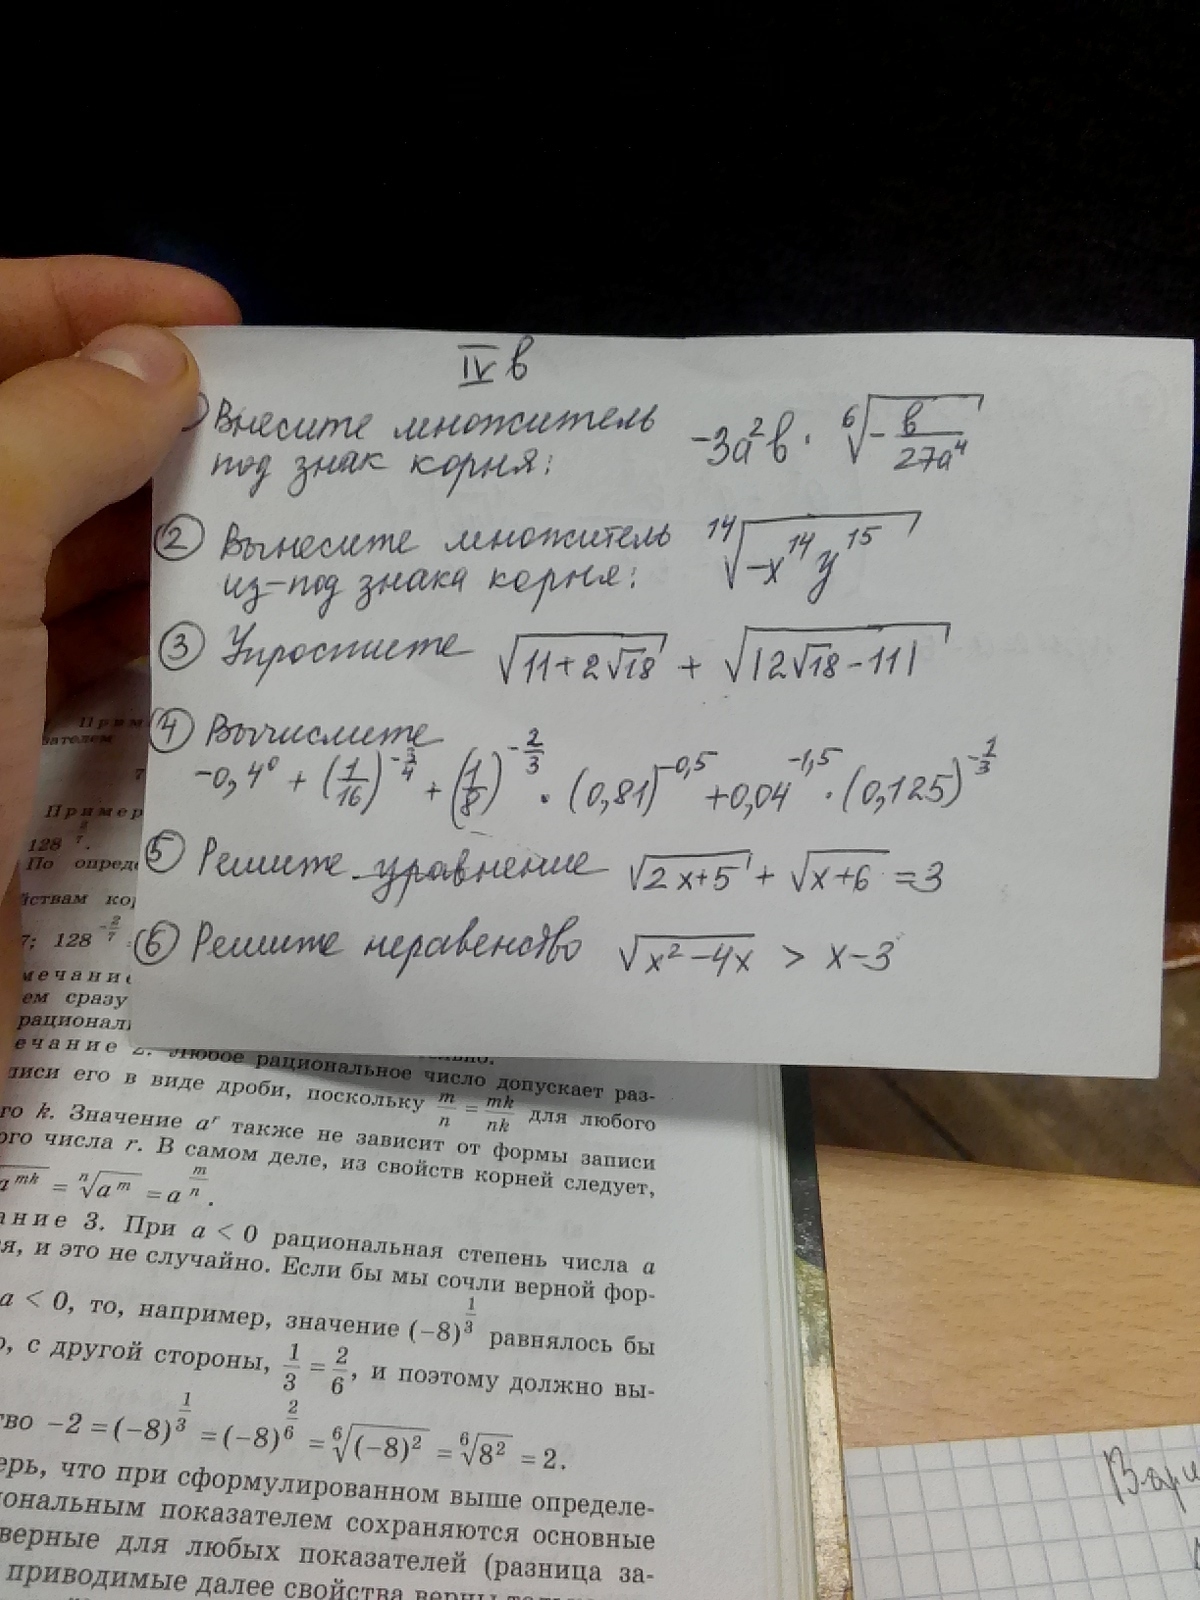 IV в
Внесите множитель -3a²b · ⁶√(-b/27a⁴)
под знак корня:
② Вынесите множитель ¹⁴√(-x¹⁴y¹⁵)
из-под знака корня:
③ Упростите √(11+2√18) + √|2√18-11|
④ Вычислите
-0,4⁰ + (1/16)^(-3/4) + (1/8)^(-2/3) · (0,81)^(-0,5) + 0,04^(-1,5) · (0,125)^(-1/3)
⑤ Решите уравнение √(2x+5) + √(x+6) = 3
⑥ Решите неравенство √(x²-4x) > x-3
Прим
зателем
7
Пример
128^(2/7).
По опреде
йствам кор
7; 128^(-2/7)
мечание
ем сразу
рационал
ечание 2. Любое рациональное число допускает раз-
писи его в виде дроби, поскольку m/n = mk/nk для любого
го k. Значение aʳ также не зависит от формы записи
ого числа r. В самом деле, из свойств корней следует,
a^(mk) = ⁿ√(aᵐ) = a^(m/n).
ание 3. При a < 0 рациональная степень числа a
я, и это не случайно. Если бы мы сочли верной фор-
a < 0, то, например, значение (-8)^(1/3) равнялось бы
о, с другой стороны, 1/3 = 2/6, и поэтому должно вы-
тво -2 = (-8)^(1/3) = (-8)^(2/6) = ⁶√((-8)²) = ⁶√(8²) = 2.
ерь, что при сформулированном выше определе-
иональным показателем сохраняются основные
верные для любых показателей (разница за-
приводимые далее свойства верны только
Вари